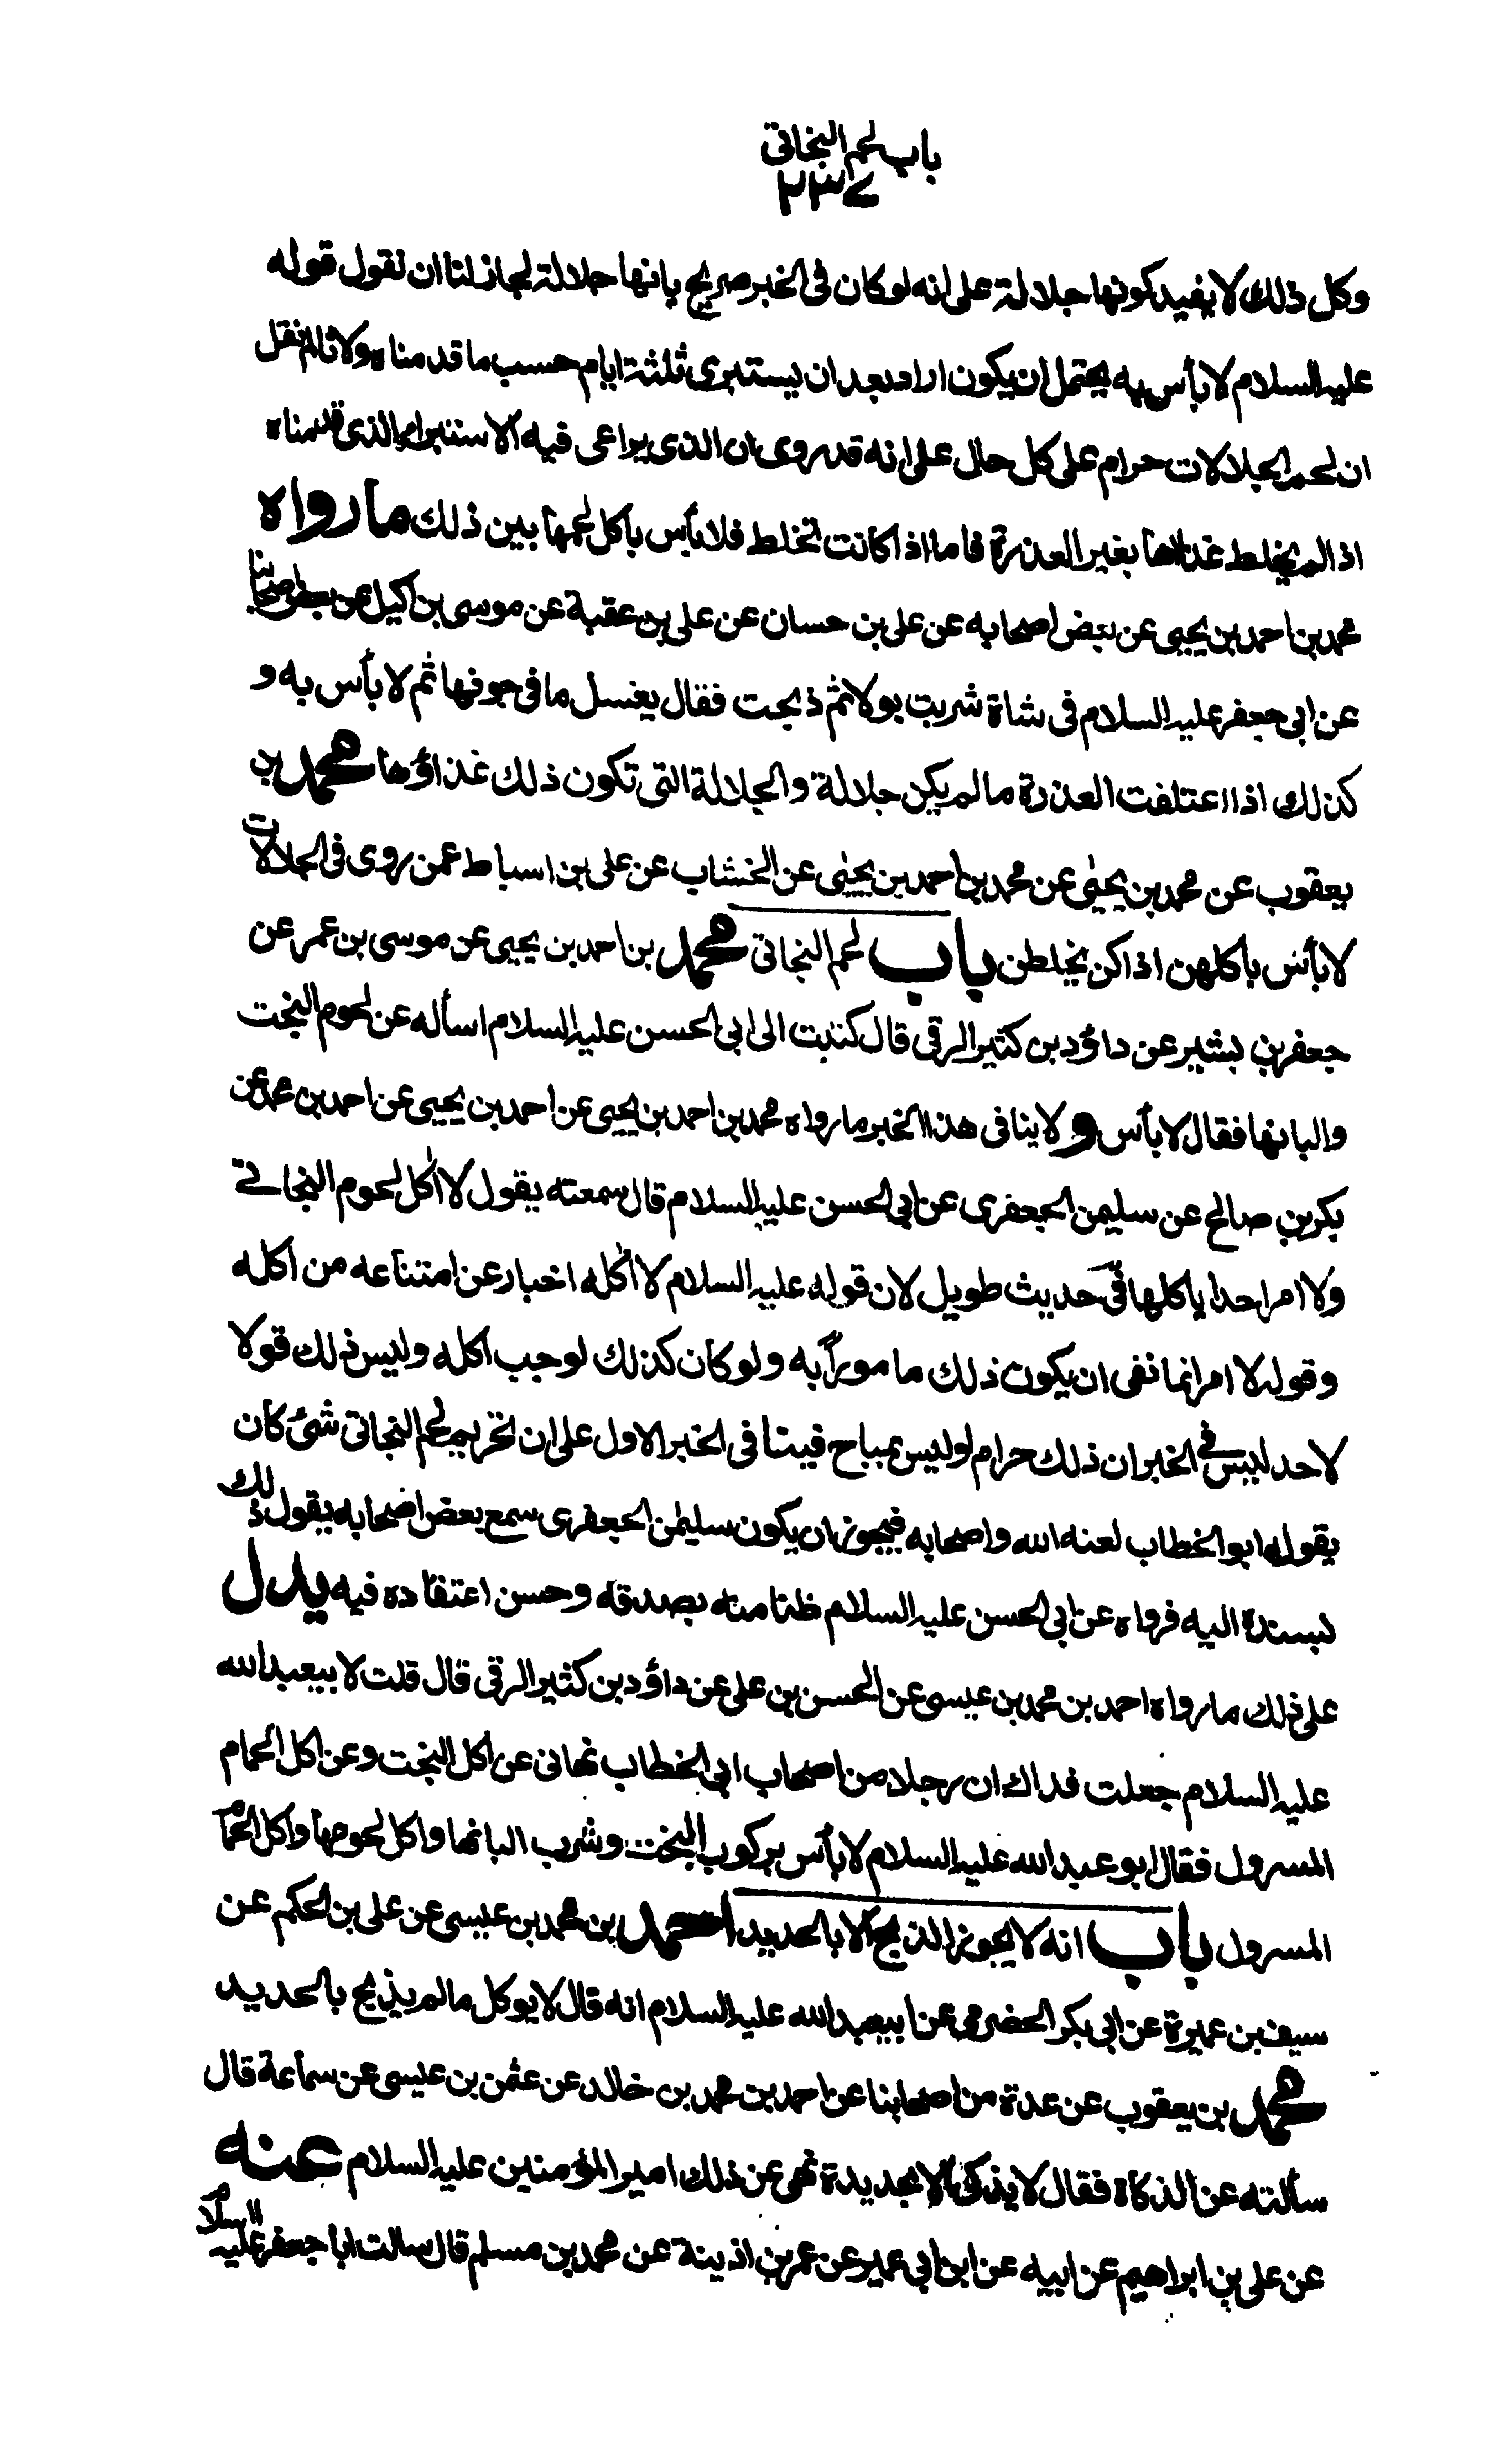 باب لحم البخاتي
٢٣٤
وكل ذلك لا يفيد كونها جلالة على انه لو كان في الخبر صريح بانها جلالة لجاز لنا ان نقول قوله
عليه السلام لا بأس به يحتمل ان يكون اراد بعد ان يستبرى ثلثة ايام حسب ما قدمناه ولانا لم نقل
ان لحم الجلالات حرام على كل حال على انه قد روى ان الذى يراعى فيه الاستبراء الذى قدمناه
اذا لم يخلط غذاها بغير العذرة فاما اذا كانت تخلط فلا بأس باكل لحمها بين ذلك ما رواه
محمد بن احمد بن يحيى عن بعض اصحابه عن على بن حسان عن على بن عقبة عن موسى بن اكيل عن بعض اصحابنا
عن ابى جعفر عليه السلام في شاة شربت بولا ثم ذبحت فقال يغسل ما في جوفها ثم لا بأس به و
كذلك اذا اعتلفت العذرة ما لم يكن جلالة والجلالة التى تكون ذلك غذاؤها محمد بن
يعقوب عن محمد بن يحيى عن محمد بن احمد بن يحيى عن الخشاب عن على بن اسباط عمن روى في الجلالات
لا بأس باكلهن اذا كن يخلطن باب لحم البخاتى محمد بن احمد بن يحيى عن موسى بن عمر عن
جعفر بن بشير عن داؤد بن كثير الرقى قال كتبت الى ابى الحسن عليه السلام اسأله عن لحوم البخت
والبانها فقال لا بأس و لا ينافى هذا الخبر ما رواه محمد بن احمد بن يحيى عن احمد بن يحيى عن احمد بن محمد عن
بكر بن صالح عن سليمن الجعفرى عن ابى الحسن عليه السلام قال سمعته يقول لا اكل لحوم البخاتى
ولا امر احدا ياكلها في حديث طويل لان قوله عليه السلام لا اكله اخبار عن امتناعه من اكله
وقوله لا امر انما نفى ان يكون ذلك مامورا به ولو كان كذلك لوجب اكله وليس ذلك قولا
لاحد ليس في الخبر ان ذلك حرام او ليس بمباح فينا في الخبر الاول على ان تحريم لحم البخاتى شئ كان
يقوله ابو الخطاب لعنه الله واصحابه فيجوز ان يكون سليمن الجعفرى سمع بعض اصحابه يقول ذلك
بسنده اليه فرواه عن ابى الحسن عليه السلام ظنا منه بصدقه وحسن اعتقاده فيه يدل
على ذلك ما رواه احمد بن محمد بن عيسى عن الحسن بن على عن داؤد بن كثير الرقى قال قلت لابيعبدالله
عليه السلام جعلت فداك ان رجلا من اصحاب ابى الخطاب نهانى عن اكل البخت وعن اكل الحمام
المسرول فقال ابو عبدالله عليه السلام لا بأس بركوب البخت وشرب البانها واكل لحومها واكل الحمام
المسرول باب انه لا يجوز الذبح الا بالحديد احمد بن محمد بن عيسى عن على بن الحكم عن
سيف بن عميرة عن ابى بكر الحضرمى عن ابيعبدالله عليه السلام انه قال لا يوكل ما لم يذبح بالحديد
محمد بن يعقوب عن عدة من اصحابنا عن احمد بن محمد بن خالد عن عثمن بن عيسى عن سماعة قال
سألته عن الذكاة فقال لا يذكى الا بحديدة نهى عن ذلك امير المؤمنين عليه السلام عنه
عن على بن ابراهيم عن ابيه عن ابن ابى عمير عن عمر بن اذينة عن محمد بن مسلم قال سالت ابا جعفر عليه السلام